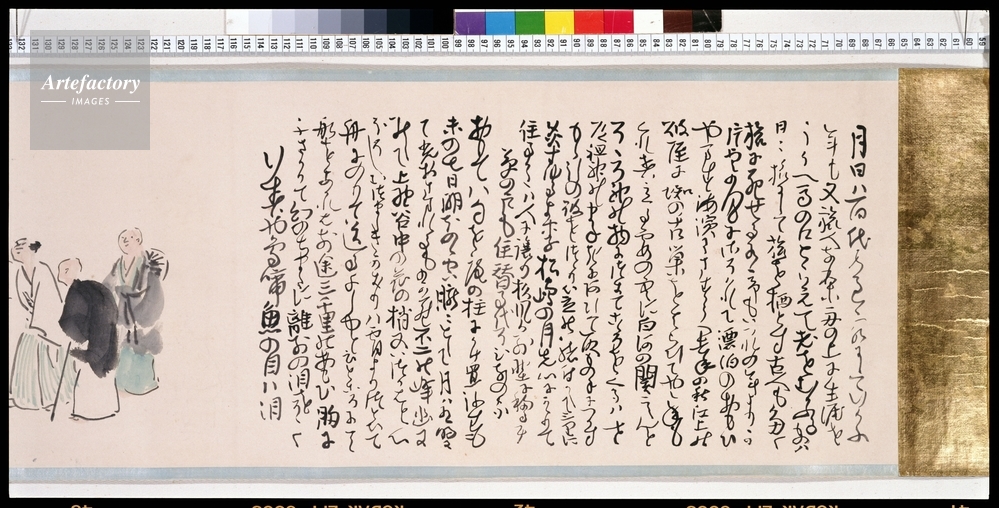 Artefactory
IMAGES
月日ハ百代の過客にして行かふ
年も又旅人也舟の上に生涯を
うかへ馬の口とらえて老をむかふる物ハ
日々旅にして旅を栖とす古人も多く
旅に死せるあり予もいつれの年よりか
片雲の風にさそはれて漂泊のおもひ
やます海濱にさすらへ去年の秋江上の
破屋に蜘の古巣をはらひてやゝ年も
くれ春立る霞の空に白川の関こえんと
そゝろ神の物につきてこゝろをくるハせ
道祖神のまねきにあひて取もの手につかす
もゝ引の破をつゝり笠の緒付かえて三里に
灸すゆるより松嶋の月先心にかゝりて
住る方ハ人に譲り杉風か別墅に移るに
草の戸も住替る代そひなの家
面八句を庵の柱に懸置弥生も
末の七日明ほのゝ空朧々として月ハ有明
にて光おさまれるものから不二の峰幽に
みえて上野谷中の花の梢又いつかハと心
ほそしむつましきかきりハ宵よりつとひて
舟にのりて送る千しゆといふ所にて
船をあかれハ前途三千里のおもひ胸に
ふさかりて幻のちまたに離別の泪をそゝく
行春や鳥啼魚の目ハ泪